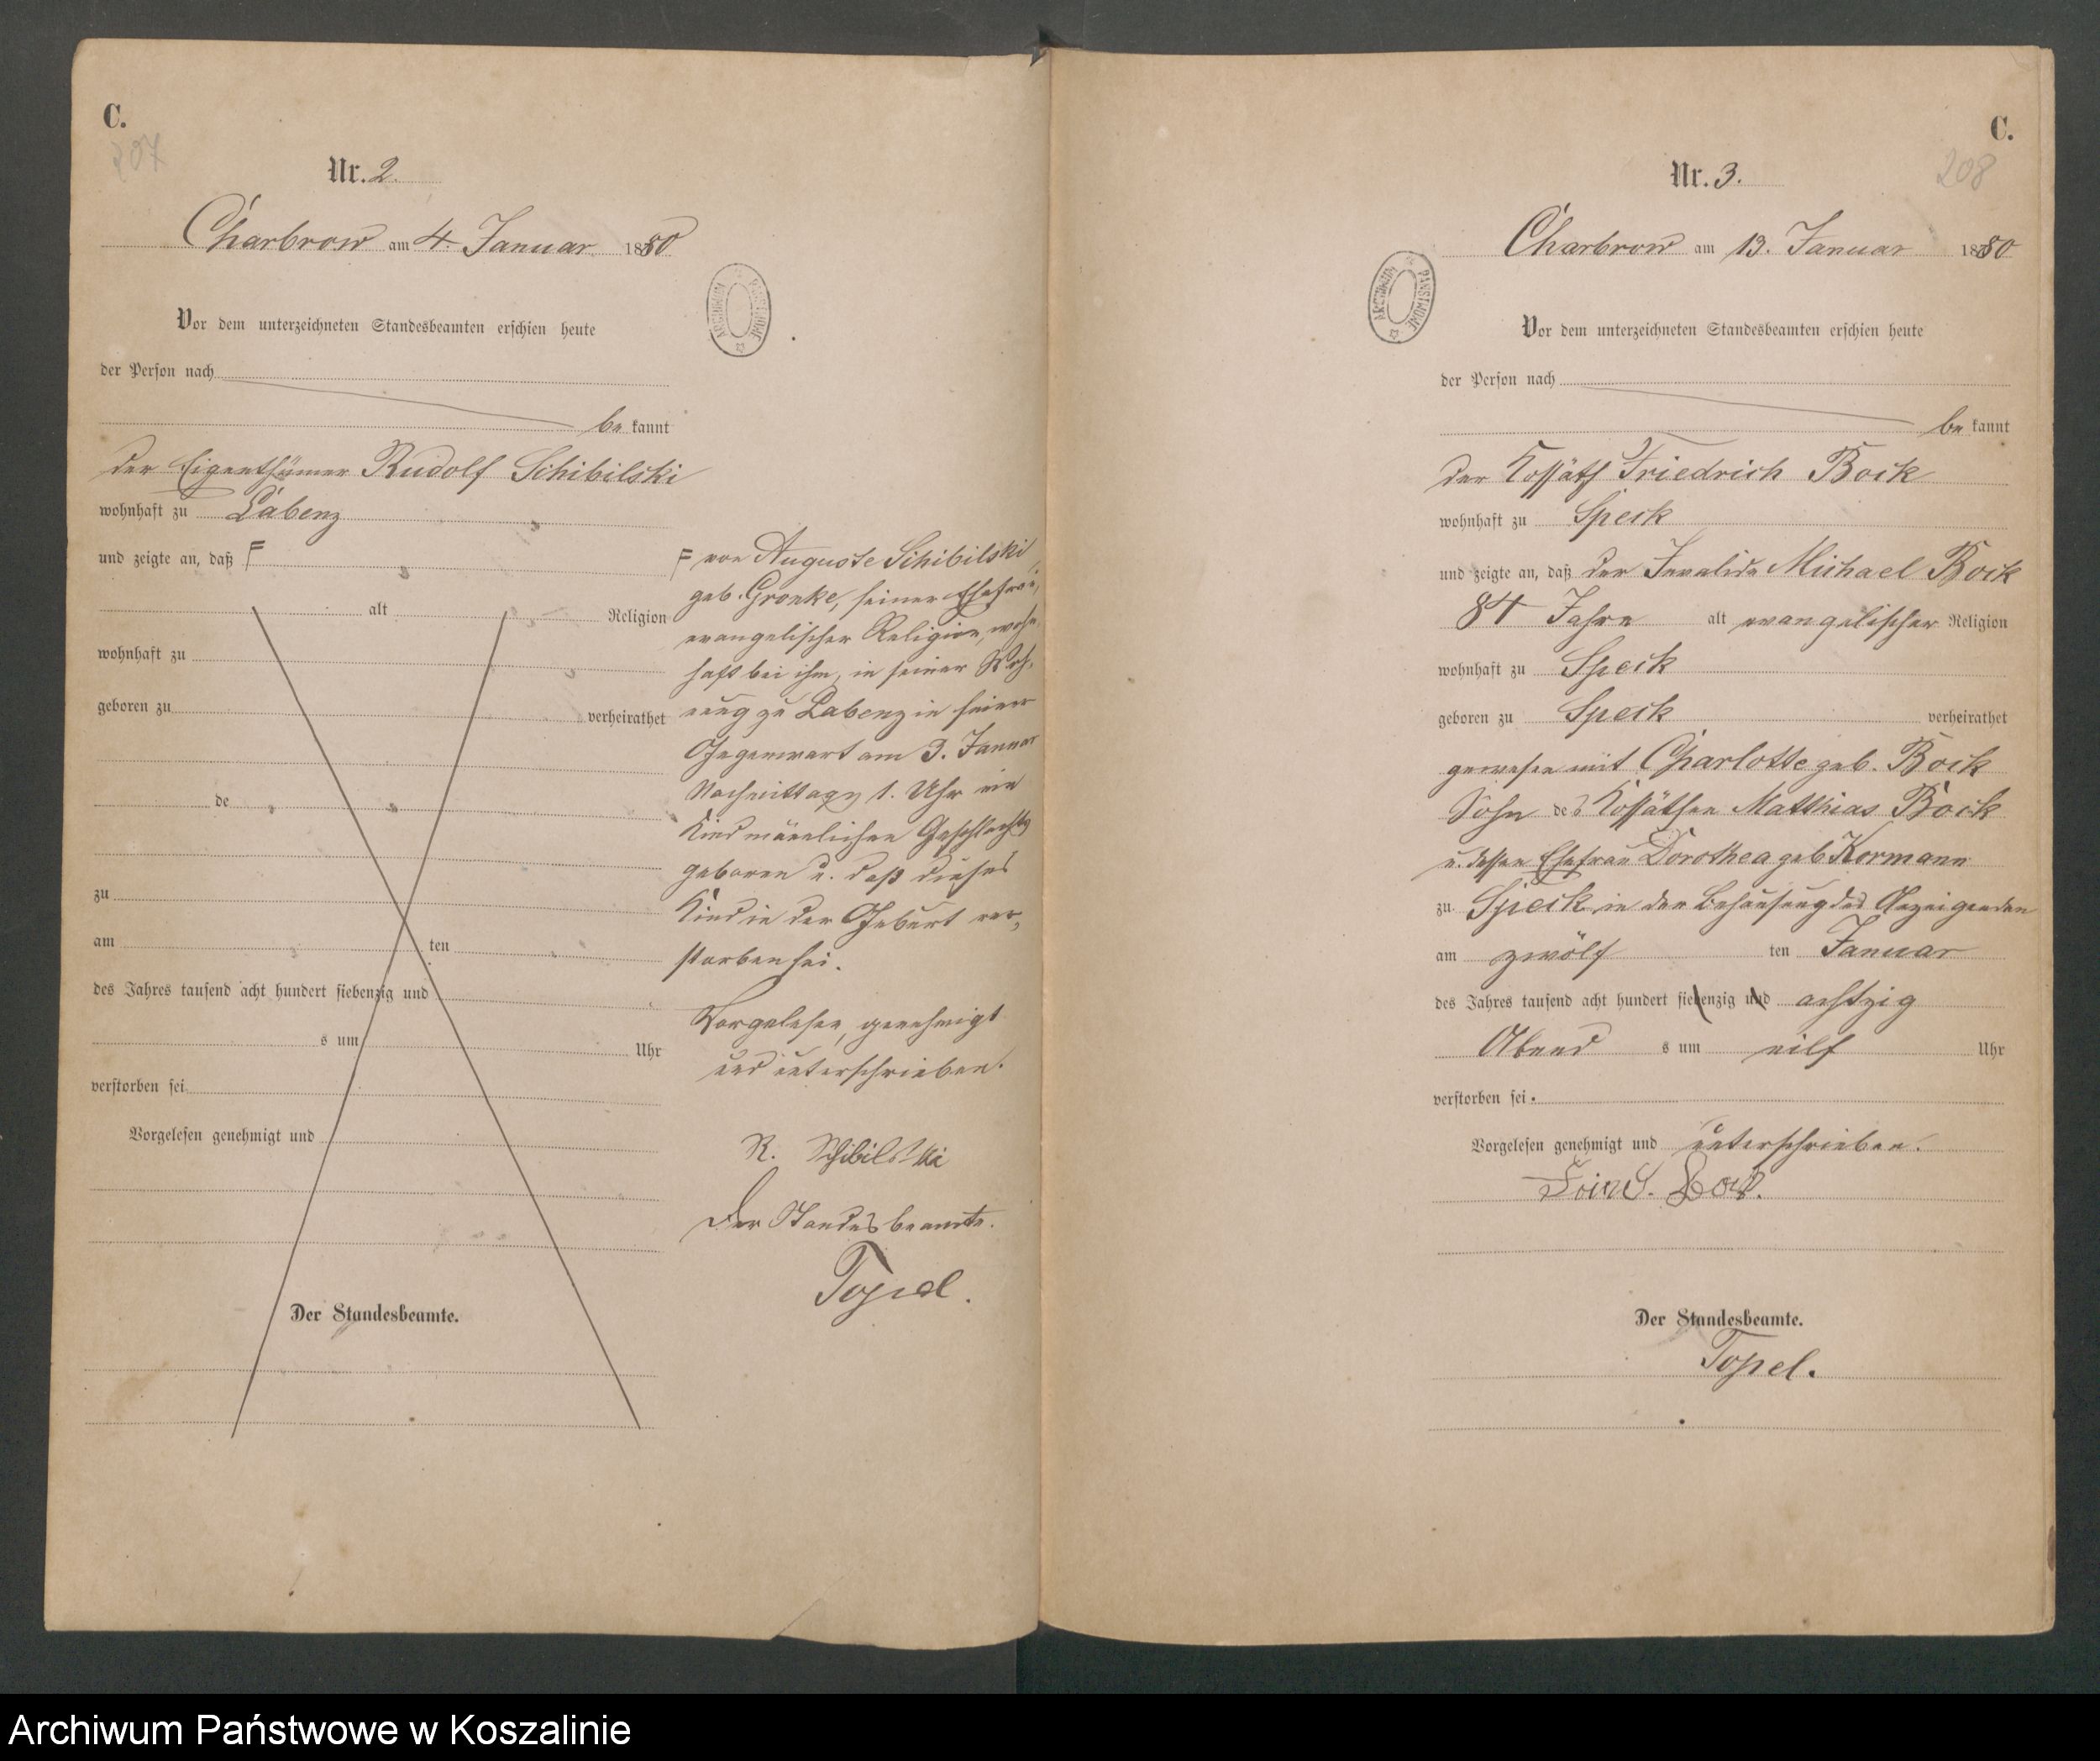 C.
207
Nr. 2.
Charbrow am 4. Januar 1880
ARCHIWUM PAŃSTWOWE
Vor dem unterzeichneten Standesbeamten erschien heute
der Person nach
be kannt
der Eigenthümer Rudolf Schibilski
wohnhaft zu Labenz
und zeigte an, daß F
alt Religion
wohnhaft zu
geboren zu verheirathet
de
zu
am ten
des Jahres tausend acht hundert siebenzig und
s um Uhr
verstorben sei
Vorgelesen genehmigt und
Der Standesbeamte.
F von Auguste Schibilski
geb. Gronke, seiner Ehefrau,
evangelischer Religion, wohn-
haft bei ihm, in seiner Woh-
nung zu Labenz in seiner
Gegenwart am 3. Januar
Nachmittags 1. Uhr ein
Kind männlichen Geschlechts
geboren u. daß dieses
Kind in der Geburt ver-
storben sei.
Vorgelesen, genehmigt
und unterschrieben.
R. Schibilski
Der Standesbeamte.
Topel.
C.
208
Nr. 3.
Charbrow am 13. Januar 1880
ARCHIWUM PAŃSTWOWE
Vor dem unterzeichneten Standesbeamten erschien heute
der Person nach
be kannt
der Kossäth Friedrich Bock
wohnhaft zu Speck
und zeigte an, daß der Invalide Michael Bock
84 Jahre alt evangelischer Religion
wohnhaft zu Speck
geboren zu Speck verheirathet
gewesen mit Charlotte geb. Bock
Sohn des Kossäthen Matthias Bock
u. dessen Ehefrau Dorothea geb Kormann
zu Speck in der Behausung des Anzeigenden
am zwölf ten Januar
des Jahres tausend acht hundert siebenzig und achtzig
Abend s um eilf Uhr
verstorben sei.
Vorgelesen genehmigt und unterschrieben.
Der Standesbeamte.
Topel.
Archiwum Państwowe w Koszalinie